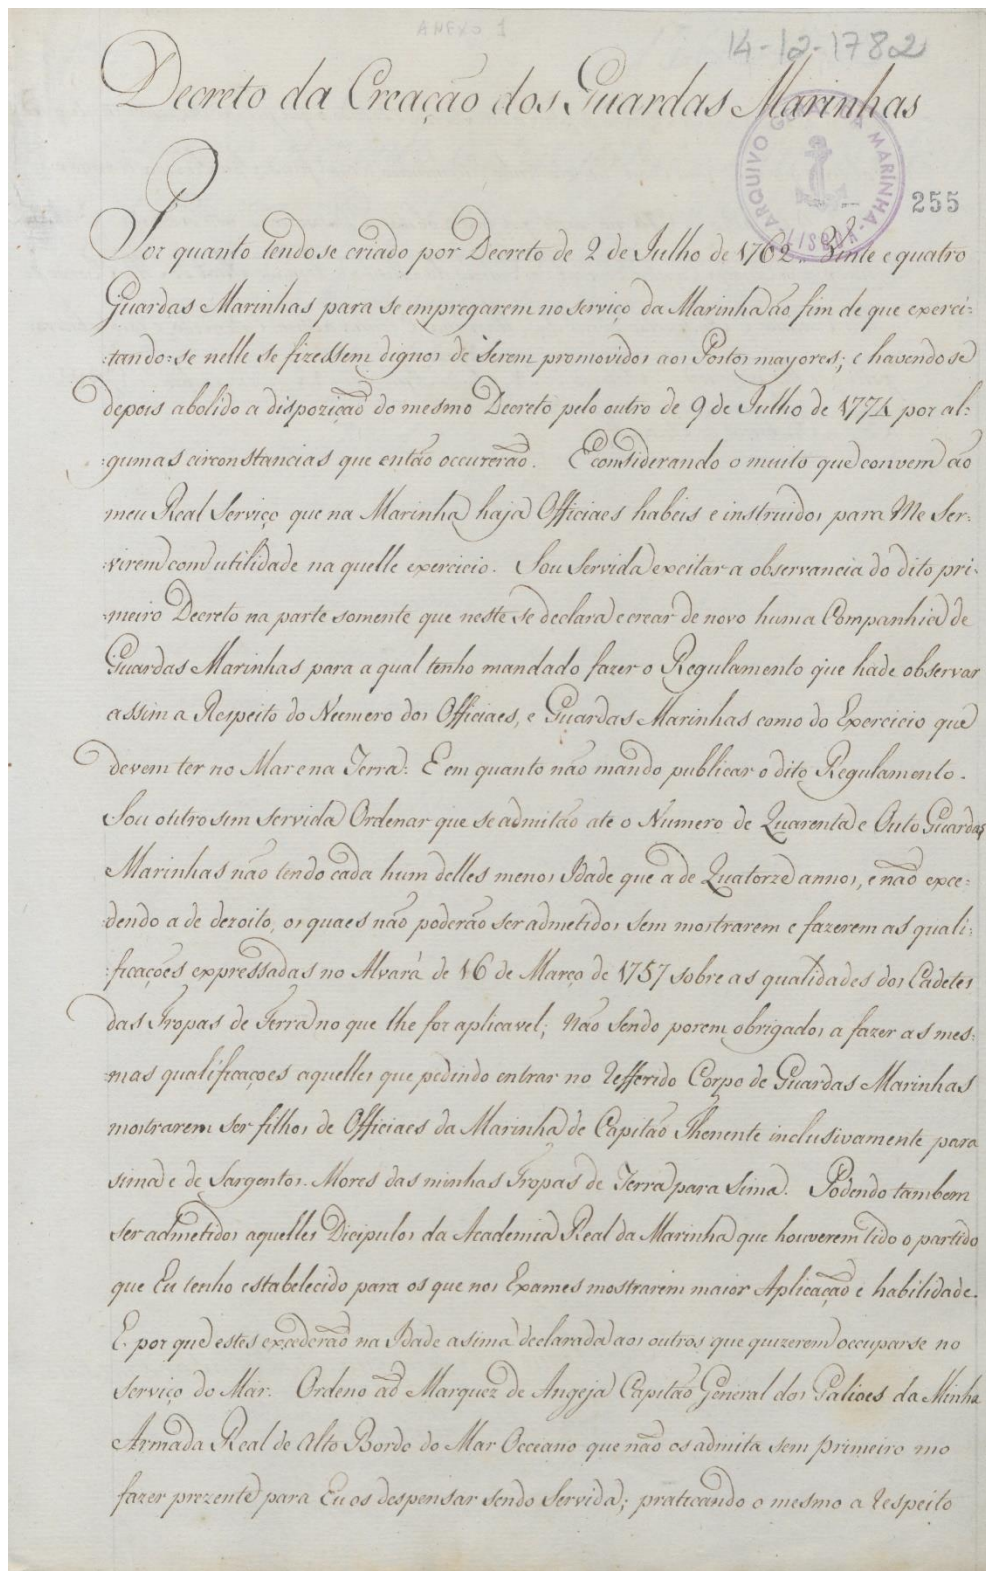 ANEXO 1
14-12-1782
Decreto da Creação dos Guardas Marinhas
ARQUIVO GERAL DA MARINHA - LISBOA
255
Por quanto tendose criado por Decreto de 2 de Julho de 1762.. Vinte e quatro
Guardas Marinhas para se empregarem no serviço da Marinha ão fim de que exerci:
:tando:se nelle se fizessem dignos de serem promovidos aos Postos mayores; e havendo se
depois abolido a dispozição do mesmo Decreto pelo outro de 9 de Julho de 1774 por al:
:gumas circonstancias que então occurerão. E comsiderando o muito que convem ão
meu Real Serviço que na Marinha haja Officiaes habeis e instruidos para Me Ser:
:virem com utilidade na quelle exercicio. Sou Servida excitar a observancia do dito pri:
:meiro Decreto na parte somente que neste se declara e crear de novo huma Companhia de
Guardas Marinhas para a qual tenho mandado fazer o Regulamento que hade observar
assim a Respeito do Nûmero dos Officiaes, e Guardas Marinhas como do Exercicio que
devem ter no Mar e na Terra: E em quanto não mando publicar o dito Regulamento.
Sou outro sim servida Ordenar que se admitão ate o Numero de Quarenta e Outo Guardas
Marinhas não tendo cada hum delles menos Idade que a de Quatorze annos, e não exce:
:dendo a de dezoito, os quaes não poderão ser admetidos sem mostrarem e fazerem as quali:
:ficações expressadas no Alvará de 16 de Março de 1757 sobre as qualidades dos Cadetes
das Tropas de Terra no que lhe for aplicavel; Não Sendo porem obrigados a fazer as mes:
:mas qualificaçoes aquelles que pedindo entrar no refferido Corpo de Guardas Marinhas
mostrarem ser filhos de Officiaes da Marinha de Capitão Thenente inclusivamente para
sima e de Sargentos Mores das minhas Tropas de Terra para Sima. Podendo tambem
ser admetidos aquelles Dicipulos da Academia Real da Marinha que houverem tido o partido
que Eu tenho estabelecido para os que nos Exames mostrarem maior Aplicação e habilidade.
E por que estes excederão na Idade asima declarada aos outros que quizerem occuparse no
Serviço do Mar. Ordeno ao Marquez de Angeja Capitão General dos Galioes da Minha
Armada Real de Alto Bordo do Mar Occeano que não os admita sem primeiro mo
fazer prezente para Eu os despensar sendo Servida; praticando o mesmo a respeito